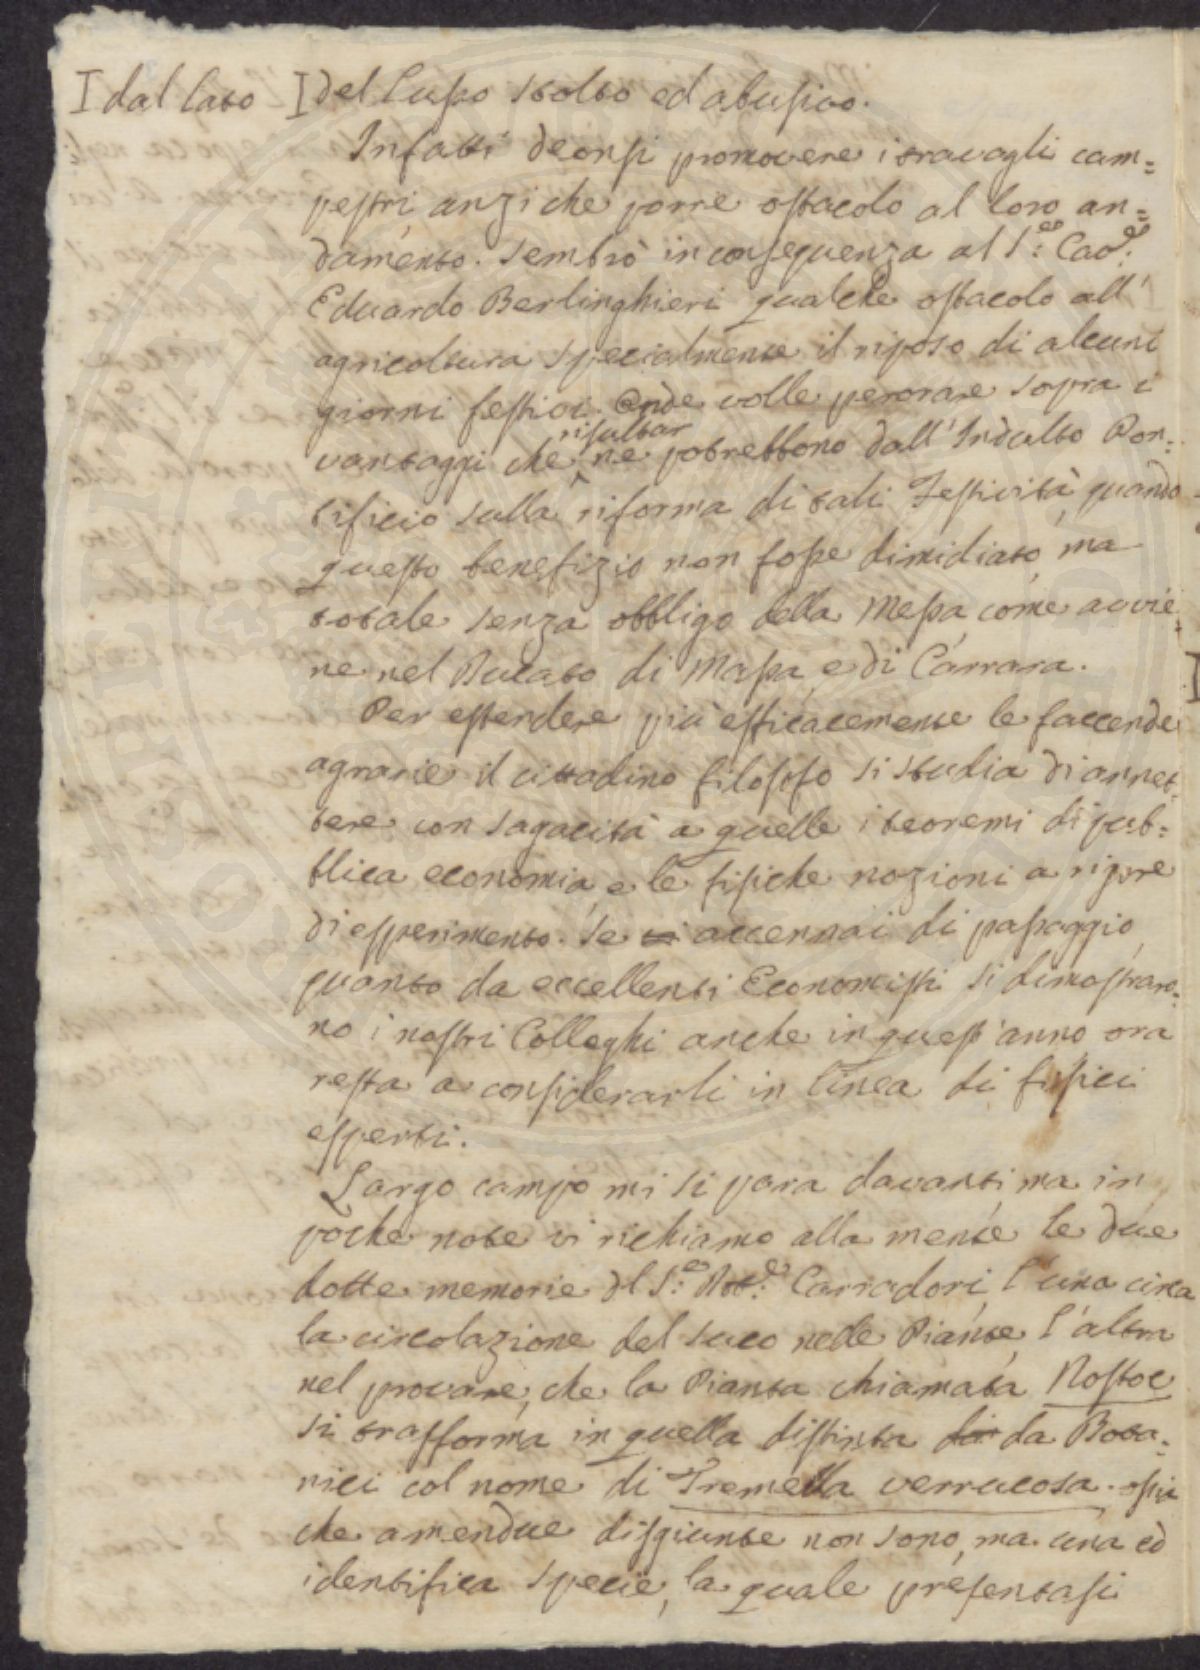 I dal lato I del lusso stolto ed abusivo.
Infatti deonsi promovere i travagli cam=
pestri anzi che porre ostacolo al loro an=
damento. Sembrò in conseguenza al S.e Cav.e
Eduardo Berlinghieri qualche ostacolo all'
agricoltura specialmente il riposo di alcuni
giorni festivi. Onde volle perorare sopra i
vantaggi che risultar ne potrebbono dall'Indulto Pon=
tificio sulla riforma di tali Festività, quando
questo benefizio non fosse dimidiato, ma
totale senza obbligo della Messa come avvie=
ne nel Ducato di Massa, e di Carrara.
Per estendere più efficacemente le faccende
agrarie il cittadino filosofo si studia di annet=
tere con sagacità a quelle i teoremi di pub=
blica economia, e le fisiche nozioni a rigore
di esperimento. Se accennai di passaggio,
quanto da eccellenti Economisti si dimostraro=
no i nostri Colleghi anche in quest'anno ora
resta a considerarli in linea di fisici
esperti.
Largo campo mi si para davanti, ma in
poche note vi richiamo alla mente le due
dotte memorie del S.e Carradori, l'una circa
la circolazione del suco nelle Piante, l'altra
nel provare, che la Pianta chiamata Nostoc
si trafforma in quella distinta da Bota=
nici col nome di Tremella verrucosa. ossia
che amendue disgiunte non sono, ma una ed
identifica specie, la quale presentasi